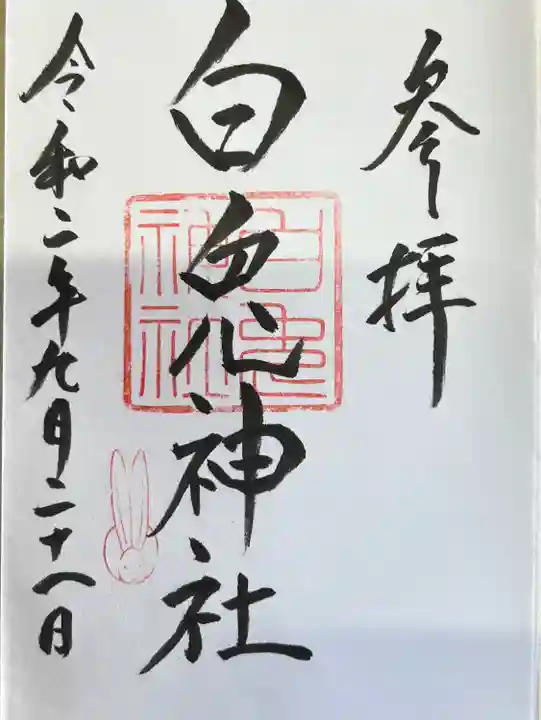 参拝
白兎神社
白兎
神社
令和二年九月二十八日